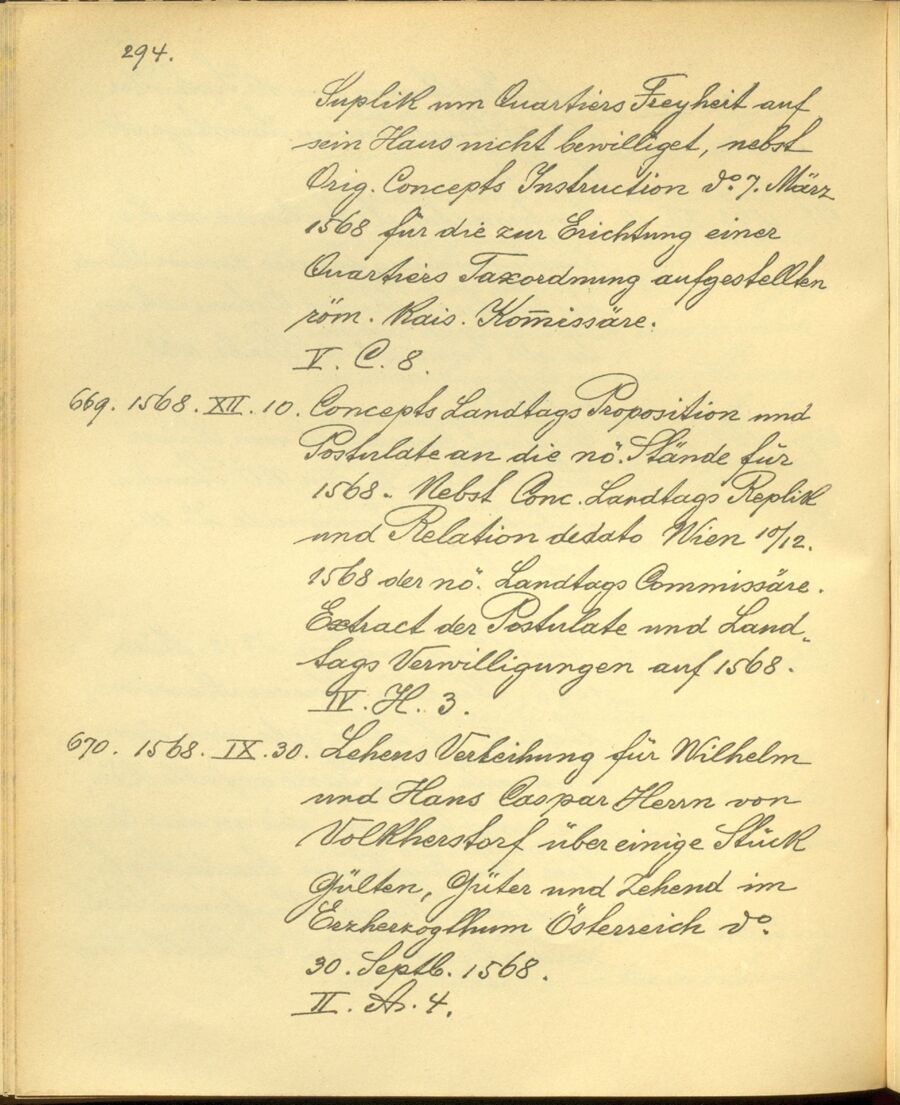 294.
Suplik um Quartiers Freyheit auf
sein Haus nicht bewilliget, nebst
Orig. Concepts Instruction do. 7. März
1568 für die zur Erichtung einer
Quartiers Taxordnung aufgestellten
röm. Kais. Kom̅issäre.
V. C. 8.
669. 1568. XII. 10. Concepts Landtags Proposition und
Postulate an die nö. Stände für
1568. Nebst Conc. Landtags Replik
und Relation dedato Wien 10/12.
1568 der nö. Landtags Commissäre.
Extract der Postulate und Land„
tags Verwilligungen auf 1568.
IV. H. 3.
670. 1568. IX. 30. Lehens Verleihung für Wilhelm
und Hans Caspar Herrn von
Volkherstorf über einige Stück
Gülten, Güter und Zehend im
Erzherzogthum Österreich do.
30. Septb. 1568.
II. A. 4.